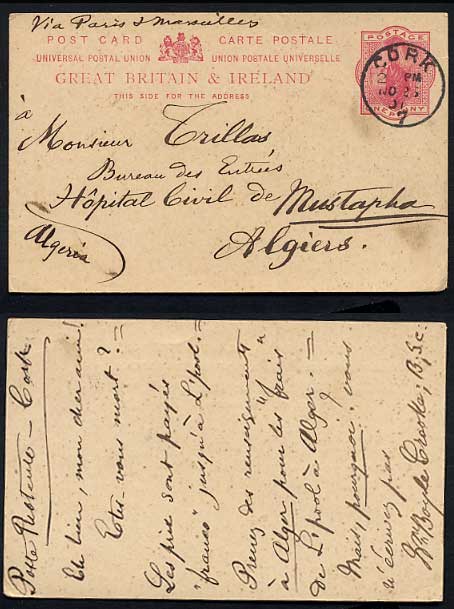 Via Paris & Marseilles
POST CARD CARTE POSTALE
UNIVERSAL POSTAL UNION UNION POSTALE UNIVERSELLE
GREAT BRITAIN & IRELAND
THIS SIDE FOR THE ADDRESS
POSTAGE
ONE PENNY
CORK
2 PM
NO 23
01
7
à
Monsieur Trillas
Bureau des Entrées
Hôpital Civil de Mustapha
Algiers.
Algeria
Poste Restante - Cork
Eh bien, mon cher ami!
Êtes vous mort?
Les pids sont payés
"franco" jusqu'à L'pool.
Prenez des renseignements
à Alger pour les frais
de L'pool à Alger.
Mais, pourquoi vous
n'écrivez pas
Wm Boyle Croskey, B.Sc.